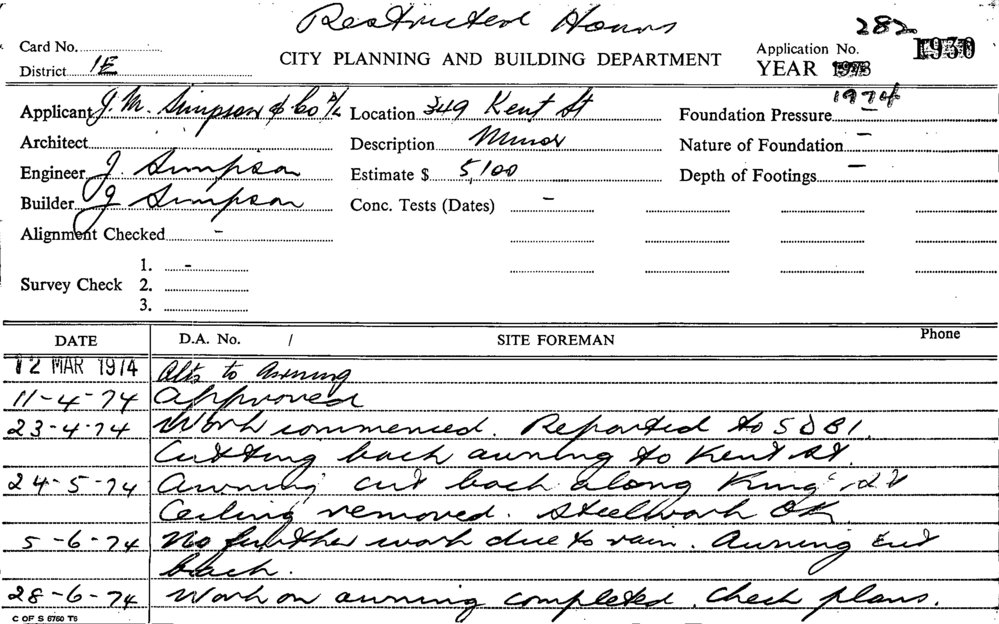 Restricted Hours
Card No.
282
District 1E
CITY PLANNING AND BUILDING DEPARTMENT
Application No. 1930
YEAR 1973
1974
Applicant J. M. Simpson & Co P/L Location 349 Kent St Foundation Pressure —
Architect Description Minor Nature of Foundation —
Engineer J. Simpson Estimate $ 5,100 Depth of Footings —
Builder J Simpson Conc. Tests (Dates) —
Alignment Checked -
1. -
Survey Check 2.
3.
DATE D.A. No. / SITE FOREMAN Phone
12 MAR 1974 Alts to Awning
11-4-74 Approved
23-4-74 Work commenced. Reported to SDBI.
Cutting back awning to Kent St.
24-5-74 Awning cut back along King St
Ceiling removed. Steelwork OK
5-6-74 No further work due to rain. Awning cut
back.
28-6-74 Work on awning completed. Check plans.
C OF S 6760 T6